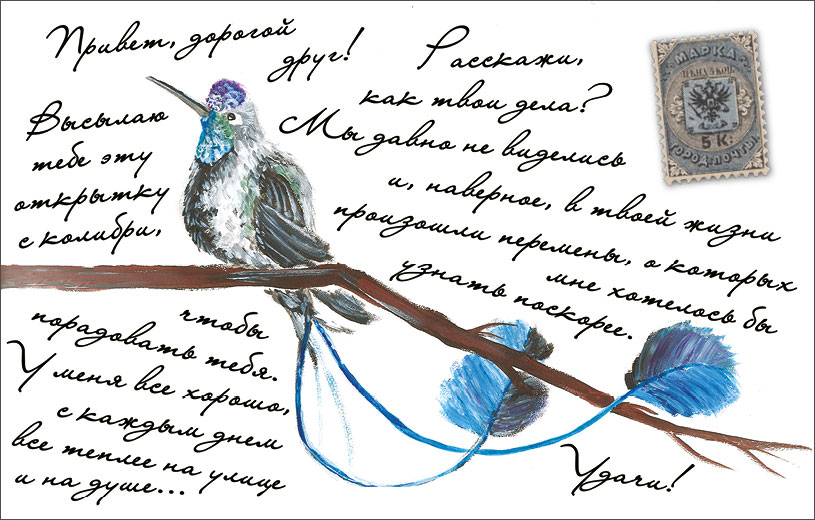 Привет, дорогой
друг!
Высылаю
тебе эту
открытку
с колибри,
чтобы
порадовать тебя.
У меня все хорошо,
с каждым днем
все теплее на улице
и на душе...
Расскажи,
как твои дела?
Мы давно не виделись
и, наверное, в твоей жизни
произошли перемены, о которых
мне хотелось бы
узнать поскорее.
Удачи!
МАРКА
5 К.
ГОРОД. ПОЧТЫ